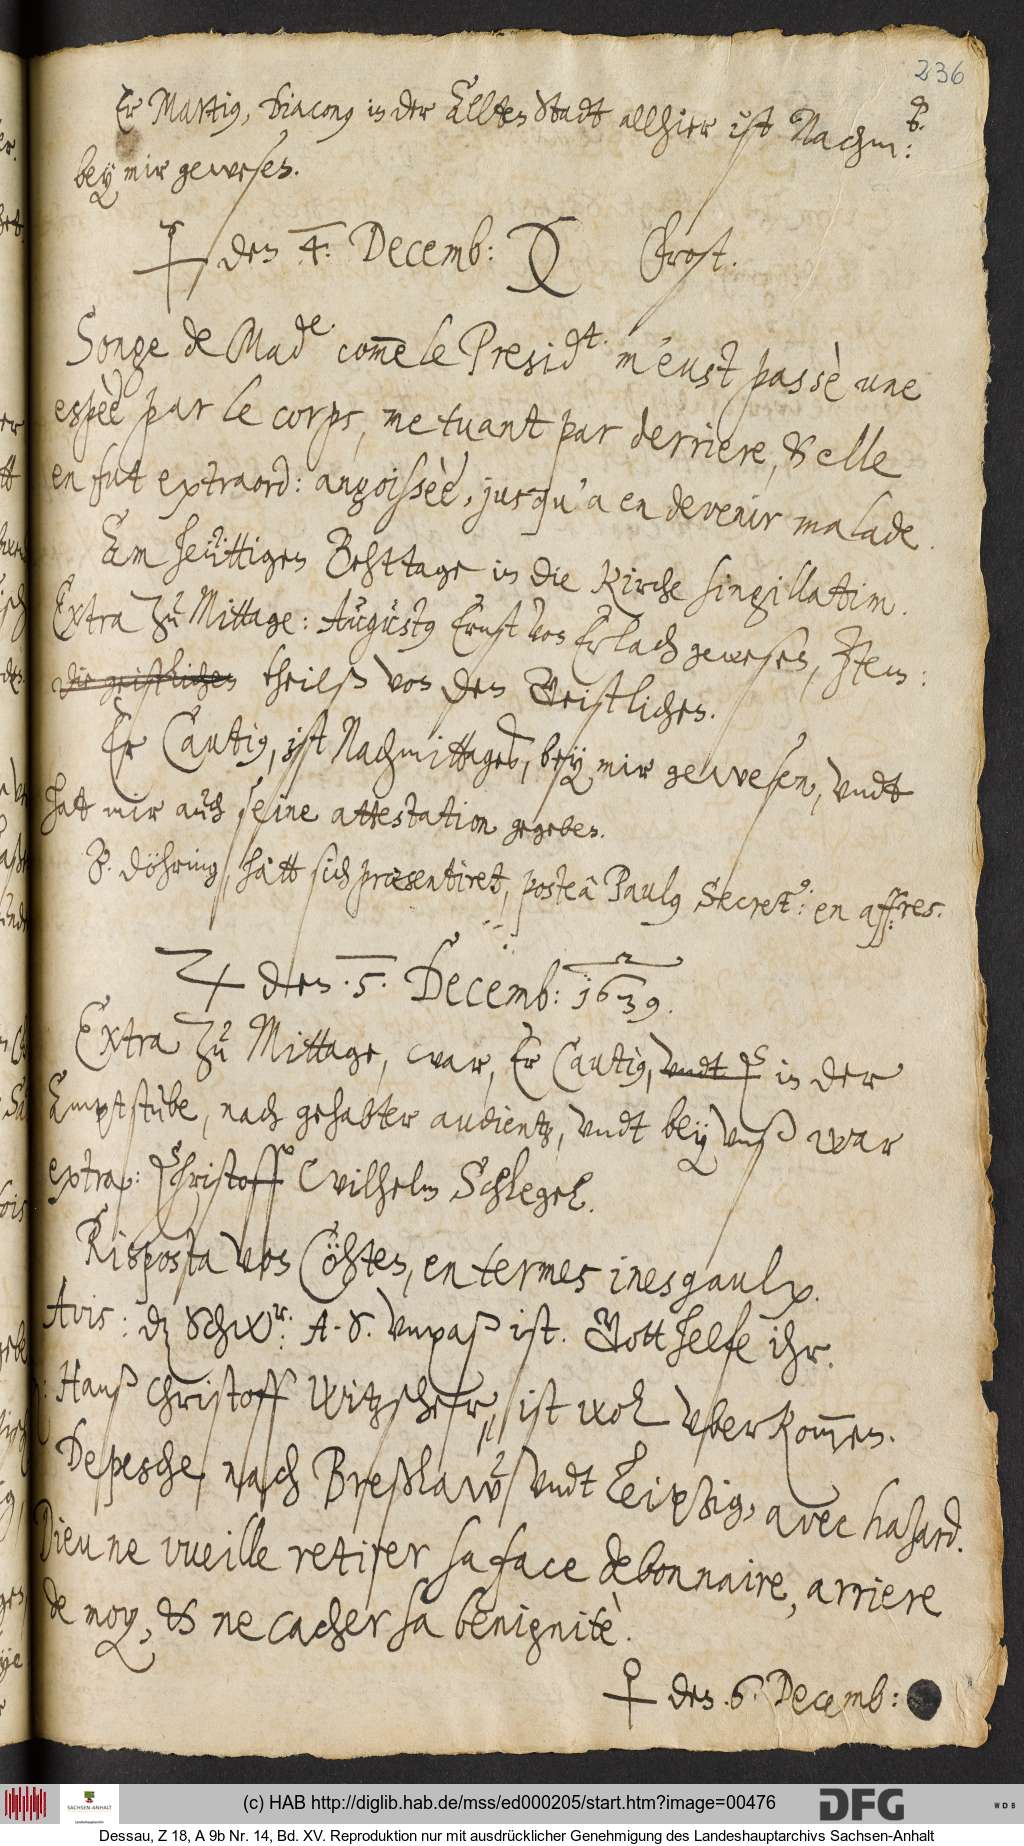 236
Er Martig, Diacong in der Allten Stadt allhier ist Nachm:
bey mir gewesen.
den 4. Decemb: Frost.
Songe de Made. come le Presidt. m'eust passè une
espèe par le corps, me tuant par derriere, & elle
en fut extraord: angoissèe, jusqu'a en devenir malade.
Am heüttigen Behttage in die Kirche singillatim.
Extra zu Mittage: Augustg Ernst von Erlach gewesen, Item:
die geistlichen theilß von den Geistlichen.
Er Cautig, ist Nachmittages, bey mir gewesen, vndt
hatt mir auch seine attestation gegeben.
P. Döhring, hatt sich præsentiret, posteâ Paulg Secret: en affres.
♃ den .5. Decemb: 1639.
Extra zu Mittage, war, Er Cautig, vndt in der
Amptstube, nach gehabter audientz, vndt bey vnß war
extra: Christoff Wilhelm Schlegel.
Risposta von Cöhten, en termes inesgaulx.
Avis: dz Schwr: A. S. vnpaß ist. Gott helfe ihr.
Hanß Christoff Witzscher, ist wol vberkommen.
Depesche nach Breßlaw vndt Leipzig, avec hasard.
Dieu ne vueille retirer sa face debonnaire, arriere
de moy, & ne cacher sa benignitè.
♀ den .6. Decemb:
SACHSEN-ANHALT
Landeshauptarchiv
(c) HAB http://diglib.hab.de/mss/ed000205/start.htm?image=00476
DFG
WDB
Dessau, Z 18, A 9b Nr. 14, Bd. XV. Reproduktion nur mit ausdrücklicher Genehmigung des Landeshauptarchivs Sachsen-Anhalt